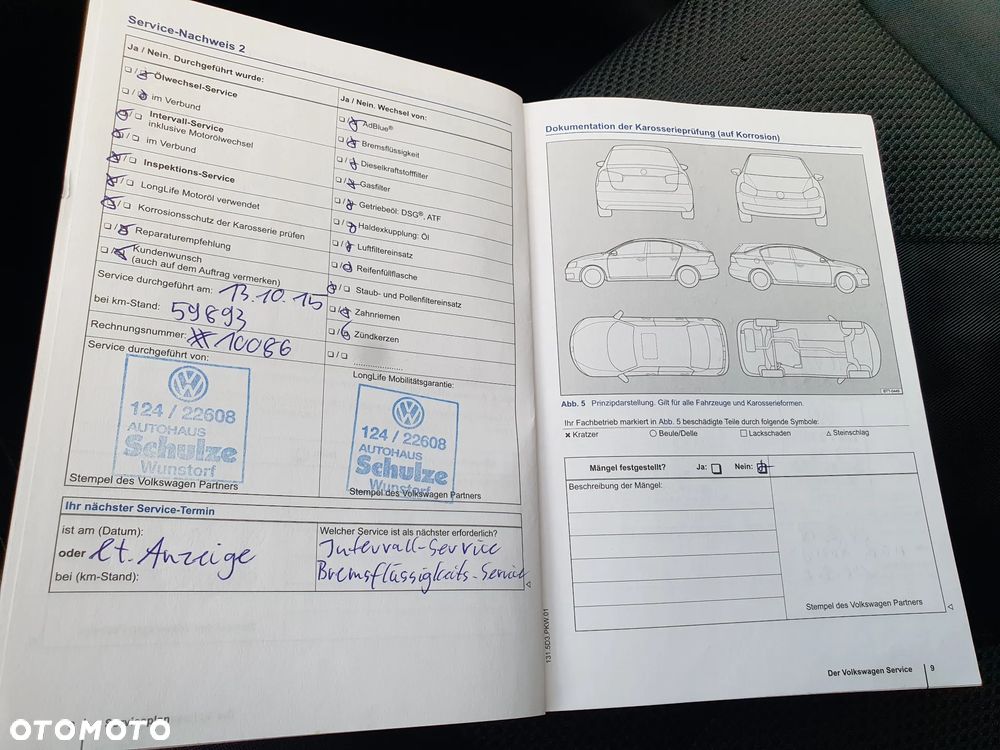 Service-Nachweis 2
Ja / Nein. Durchgeführt wurde:
Ölwechsel-Service
im Verbund
Intervall-Service
inklusive Motorölwechsel
im Verbund
Inspektions-Service
LongLife Motoröl verwendet
Korrosionsschutz der Karosserie prüfen
Reparaturempfehlung
Kundenwunsch
(auch auf dem Auftrag vermerken)
Service durchgeführt am: 13.10.15
bei km-Stand: 59893
Rechnungsnummer: #10086
Service durchgeführt von:
124 / 22608
AUTOHAUS
Schulze
Wunstorf
Stempel des Volkswagen Partners
Ja / Nein. Wechsel von:
AdBlue®
Bremsflüssigkeit
Dieselkraftstofffilter
Gasfilter
Getriebeöl: DSG®, ATF
Haldexkupplung: Öl
Luftfiltereinsatz
Reifenfüllflasche
Staub- und Pollenfiltereinsatz
Zahnriemen
Zündkerzen
LongLife Mobilitätsgarantie:
124 / 22608
AUTOHAUS
Schulze
Wunstorf
Stempel des Volkswagen Partners
Ihr nächster Service-Termin
ist am (Datum):
oder lt. Anzeige
bei (km-Stand):
Welcher Service ist als nächster erforderlich?
Intervall-Service
Bremsflüssigkeits-Service
Serviceplan
Dokumentation der Karosserieprüfung (auf Korrosion)
B7T-0449
Abb. 5 Prinzipdarstellung. Gilt für alle Fahrzeuge und Karosserieformen.
Ihr Fachbetrieb markiert in Abb. 5 beschädigte Teile durch folgende Symbole:
× Kratzer ○ Beule/Delle □ Lackschaden △ Steinschlag
Mängel festgestellt? Ja: Nein:
Beschreibung der Mängel:
Stempel des Volkswagen Partners
131.5D3.PKW.01
Der Volkswagen Service 9
OTOMOTO